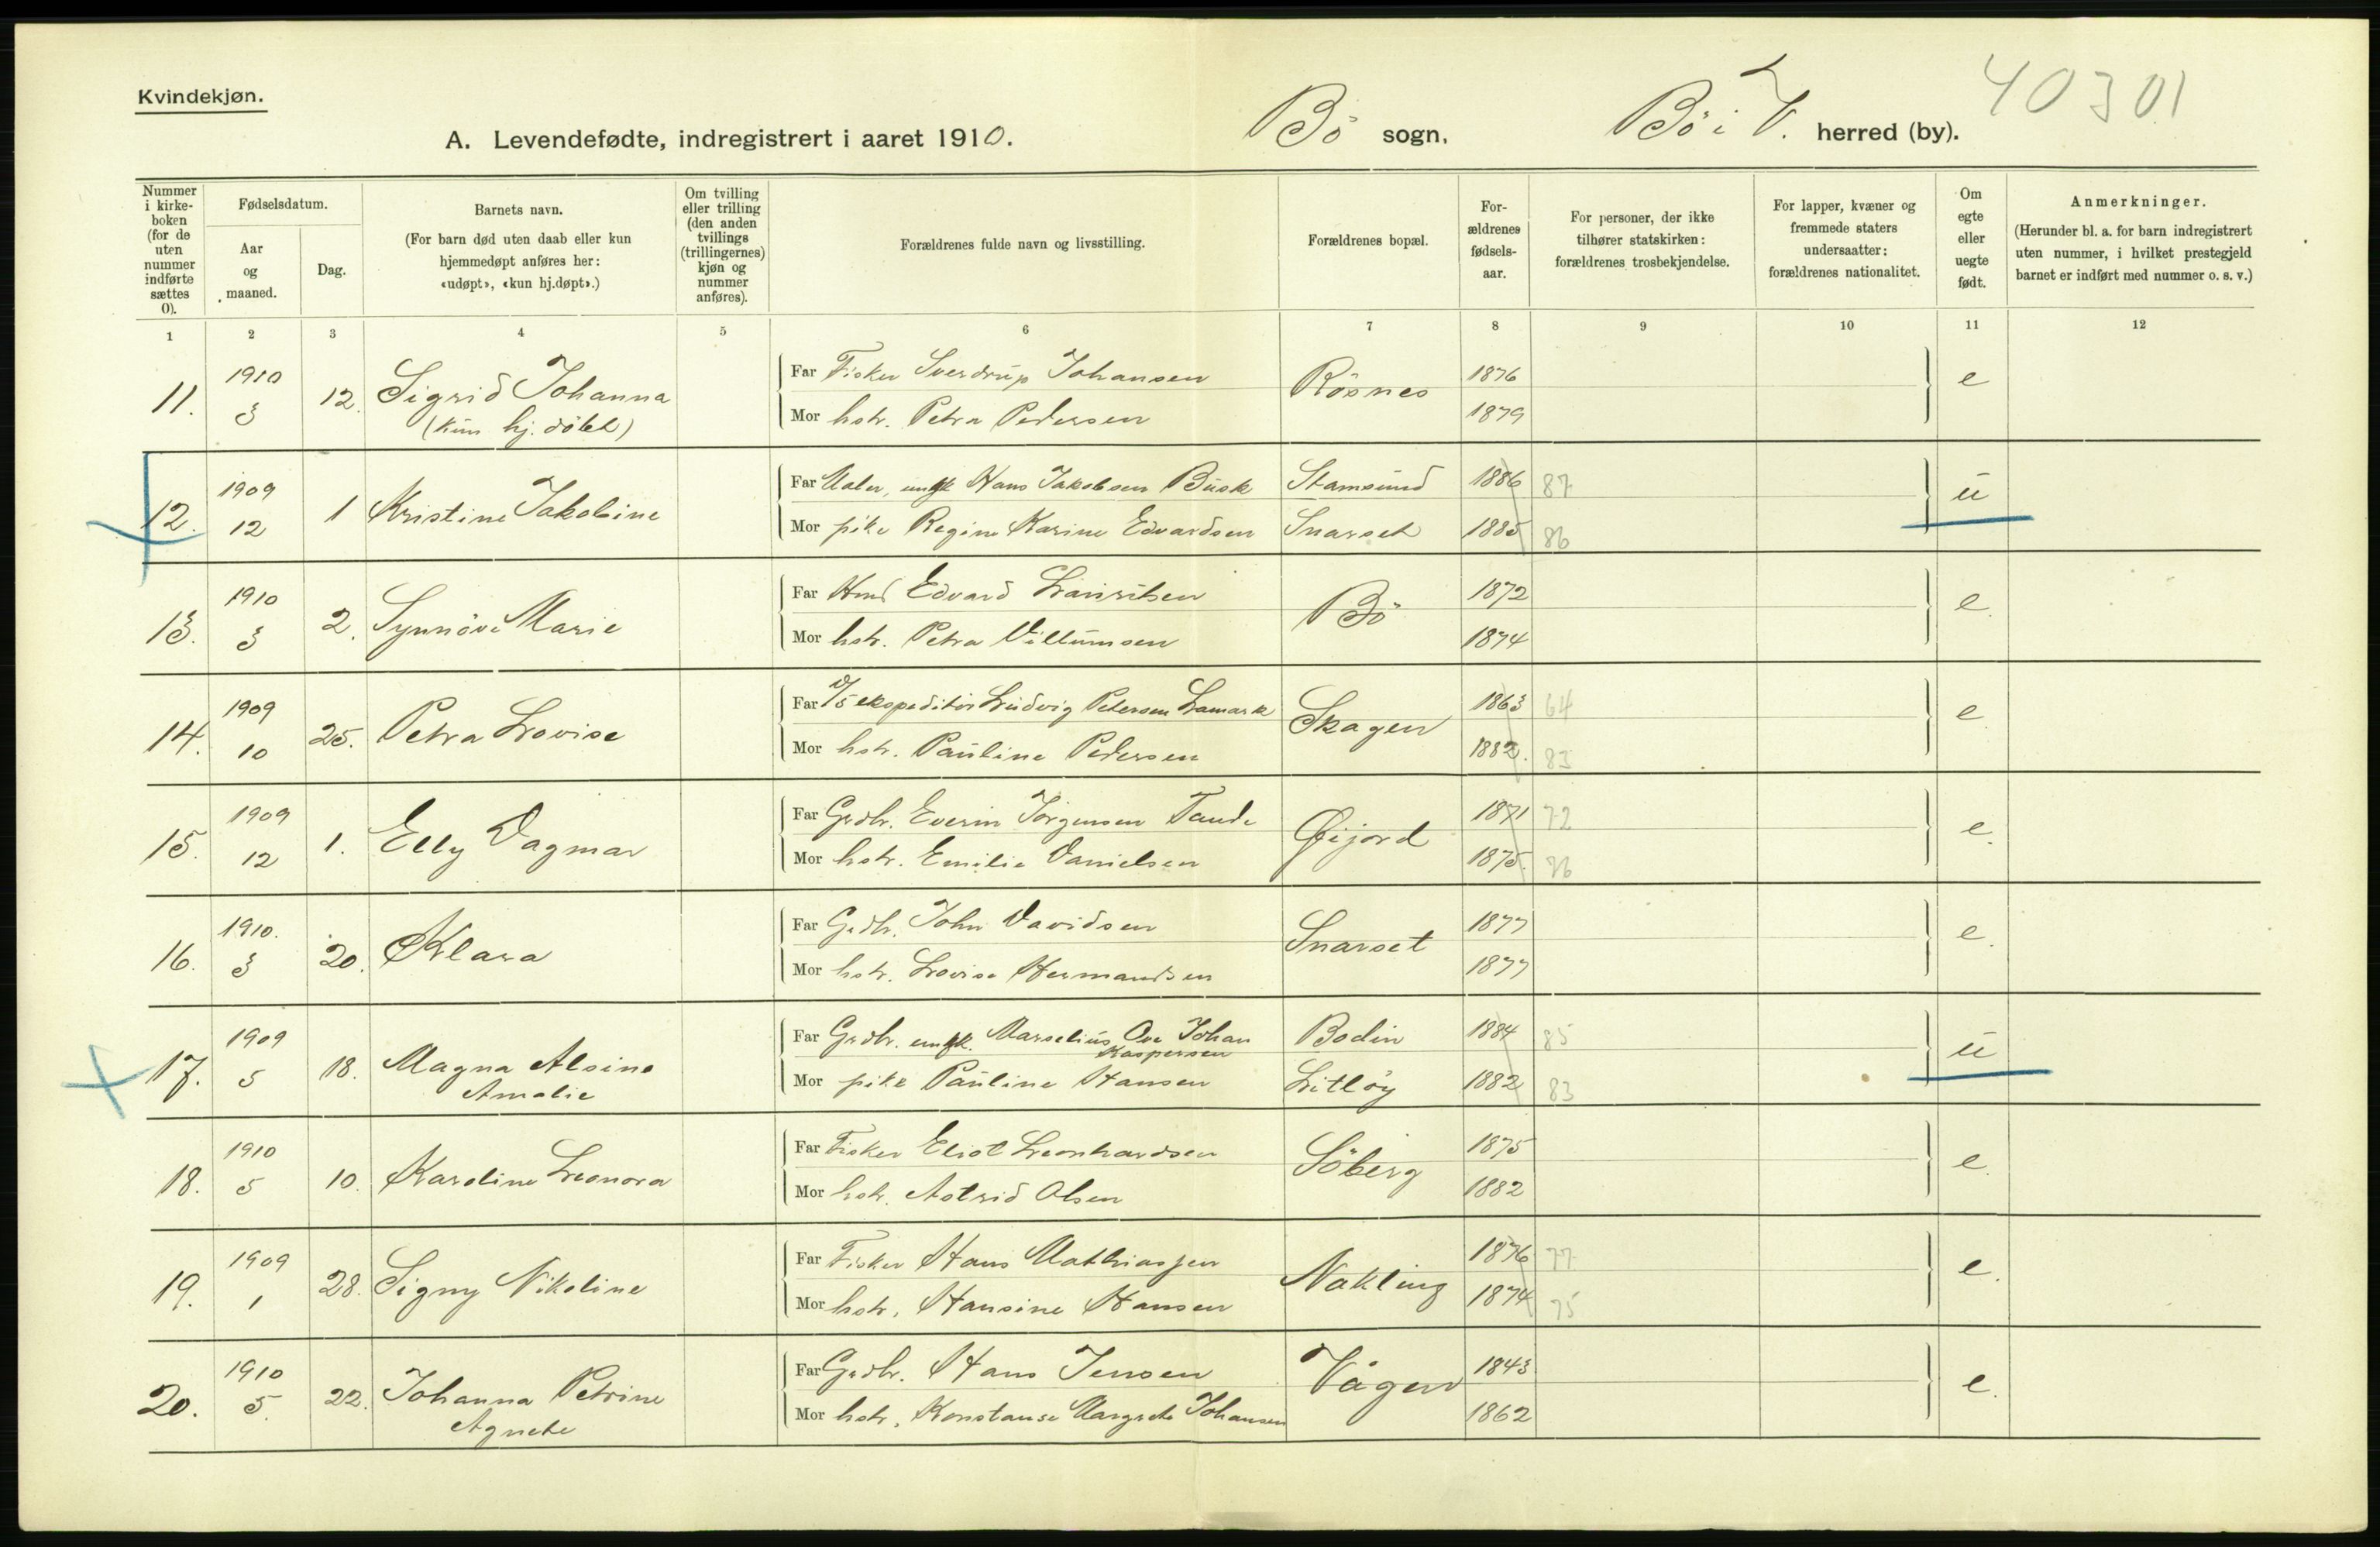 Kvindekjøn.
40301
A. Levendefødte, indregistrert i aaret 1910. Bö sogn, Bö i V. herred (by).
Nummer i kirke-boken (for de uten nummer indførte sættes 0).
Fødselsdatum.
Aar og maaned.
Dag.
Barnets navn.
(For barn død uten daab eller kun hjemmedøpt anføres her: «udøpt», «kun hj.døpt».)
Om tvilling eller trilling (den anden tvillings (trillingernes) kjøn og nummer anføres).
Forældrenes fulde navn og livsstilling.
Forældrenes bopæl.
For-ældrenes fødsels-aar.
For personer, der ikke tilhører statskirken: forældrenes trosbekjendelse.
For lapper, kvæner og fremmede staters undersaatter: forældrenes nationalitet.
Om egte eller uegte født.
Anmerkninger.
(Herunder bl. a. for barn indregistrert uten nummer, i hvilket prestegjeld barnet er indført med nummer o. s. v.)
1 2 3 4 5 6 7 8 9 10 11 12
11. 1910 3 12. Sigrid Johanna (kun hj. döbt)
Far Fisker Sverdrup Johansen Rösnes 1876 e
Mor hstr. Petra Pedersen 1879
12. 1909 12 1 Kristine Jakobine
Far Maler, ungk Hans Jakobsen Busk Stamsund 1886 87 u
Mor pike Regine Karine Edvardsen Snarset 1885 86
13. 1910 3 2. Synnöve Marie
Far Hmd Edvard Lauritsen Bö 1872 e.
Mor hstr. Petra Villumsen 1874
14. 1909 10 25. Petra Lovise
Far D/S ekspeditör Ludvig Petersen Lamark Skagen 1863 64 e
Mor hstr. Pauline Pedersen 1882. 83
15. 1909 12 1. Elly Dagmar
Far Grdbr. Everin Jörgensen Tande Øijord 1871 72 e.
Mor hstr. Emilie Danielsen 1875. 76
16. 1910. 3 20. Klara
Far Grdbr. John Davidsen Snarset 1877 e.
Mor hstr. Lovise Hermandsen 1877
17. 1909 5 18. Magna Alsine Amalie
Far Grdbr. ungk. Marselius Ove Johan Kaspersen Bodin 1884 85 u
Mor pike Pauline Hansen Litlöy 1882 83
18. 1910 5 10. Karoline Leonora
Far Fisker Eliot Leonhardsen Söberg 1875 e.
Mor hstr. Astrid Olsen 1882
19. 1909 1 28. Signy Nikoline
Far Fisker Hans Mathiassen Nakling 1876 77 e.
Mor hstr. Hansine Hansen 1874 75
20. 1910 5. 22. Johanna Petrine Agnete
Far Grdbr. Hans Jensen Vågen 1843 e.
Mor hstr. Konstanse Margrete Johansen 1862